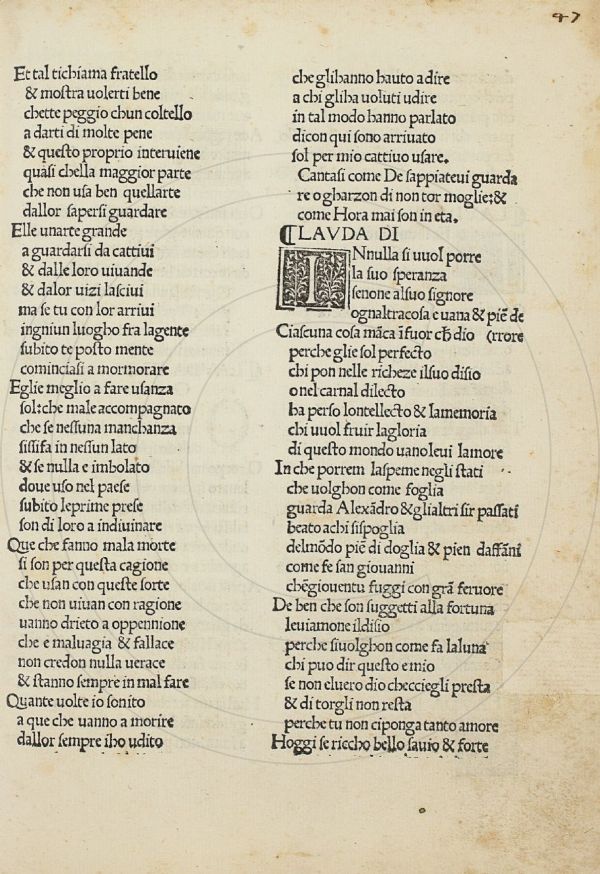 47
Et tal tichiama fratello
& mostra uolerti bene
chette peggio chun coltello
a darti di molte pene
& questo proprio interuiene
quasi chella maggior parte
che non usa ben quellarte
dallor sapersi guardare
Elle unarte grande
a guardarsi da cattiui
& dalle loro uiuande
& dalor uizi lasciui
ma se tu con lor arriui
ingniun luogho fra lagente
subito te posto mente
cominciasi a mormorare
Eglie meglio a fare usanza
sol: che male accompagnato
che se nessuna manchanza
sissifa in nessun lato
& se nulla e imbolato
doue uso nel paese
subito leprime prese
son di loro a indiuinare
Que che fanno mala morte
si son per questa cagione
che usan con queste sorte
che non uiuan con ragione
uanno drieto a oppennione
che e maluagia & fallace
non credon nulla uerace
& stanno sempre in mal fare
Quante uolte io sonito
a que che uanno a morire
dallor sempre iho udito
che glihanno hauto a dire
a chi gliha uoluti udire
in tal modo hanno parlato
dicon qui sono arriuato
sol per mio cattiuo usare.
Cantasi come De sappiateui guarda
re o gharzon di non tor moglie: &
come Hora mai son in eta.
¶LAVDA DI
INnulla si uuol porre
la suo speranza
senone alsuo signore
ognaltracosa e uana & piē de
Ciascuna cosa māca ī fuor ch̄ dio (rrore
perche glie sol perfecto
chi pon nelle richeze ilsuo disio
o nel carnal dilecto
ha perso lontellecto & lamemoria
chi uuol fruir lagloria
di questo mondo uano leui lamore
In che porrem laspeme negli stati
che uolghon come foglia
guarda Alexādro & glialtri sir passati
beato achi sispoglia
delmōdo piē di doglia & pien daffāni
come fe san giouanni
chē giouentu fuggi con grā feruore
De ben che son suggetti alla fortuna
leuiamone ildisio
perche siuolghon come fa laluna
chi puo dir questo e mio
se non eluero dio checciegli presta
& di torgli non resta
perche tu non ciponga tanto amore
Hoggi se riccho bello sauio & forte